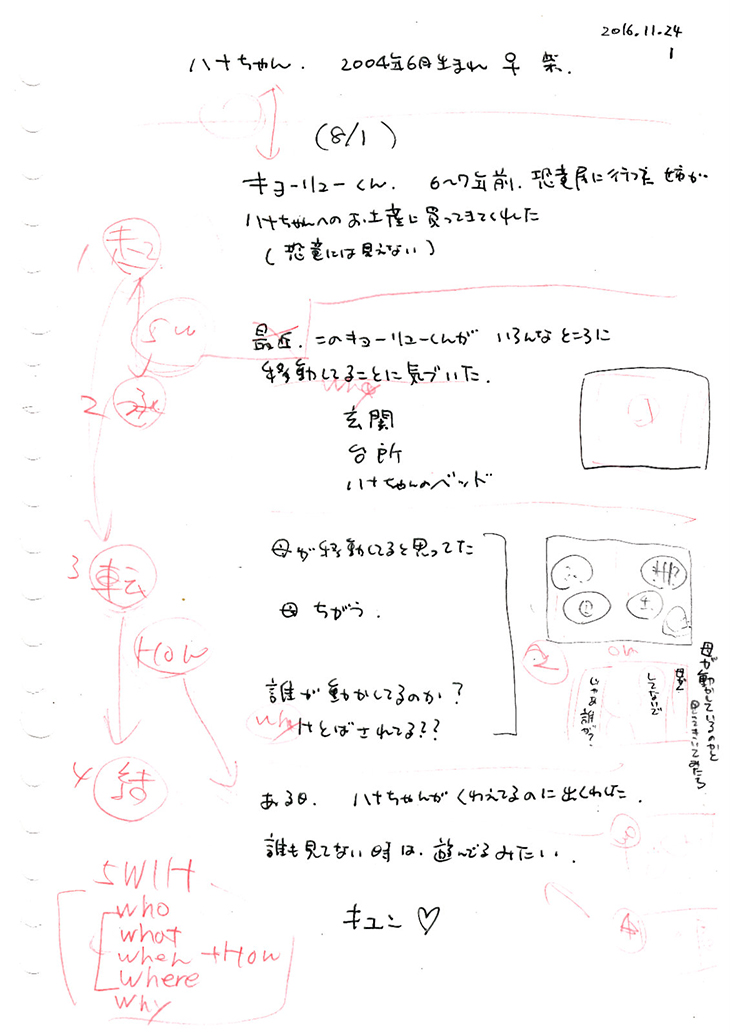 2016.11.24
1
ハナちゃん. 2004年6月生まれ ♀ 柴.
(8/1)
キョーリューくん. 6〜7年前. 恐竜展に行った 姉が
ハナちゃんへのお土産に買ってきてくれた
(恐竜には見えない)
1 起
5W
最近. このキョーリューくんが いろんなところに
移動してることに気づいた.
who
2 承
玄関
台所
ハナちゃんのベッド
母が移動してると思ってた
3 転
母 ちがう.
HOW
誰が動かしてるのか?
who
けとばされてる??
2
or
母が動かしているのかと
母に
してないで
じゃあ誰が?
4 結
ある日. ハナちゃんが くわえてるのに出くわした.
誰も見てない時は. 遊んでるみたい.
キュン ♡
3
4
5W1H
who
what
when +How
where
why